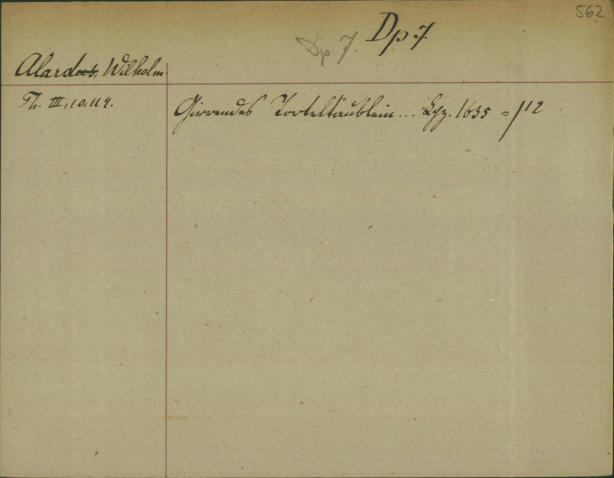 562
Dp 7. Dp. 7
Alardus, Wilhelm
Th. III, 10. 114.
Girrendes Torteltäublein... Lpz. 1635 = /12